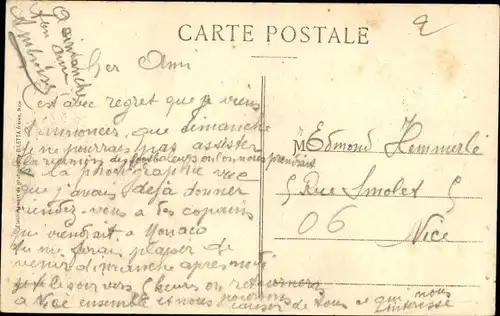 CARTE POSTALE
Dimanche
Ton ami
Cher Ami
c'est avec regret que je viens
t'annoncer, que dimanche
je ne pourrais pas assister
a la reunion des footballeurs ou l'on nous prendrait
a la photographie vue
que j'avais deja donner
rendez-vous a des copains
qui viendrait a Monaco
tu me ferais plaisir de
venir dimanche après midi
et le soir vers 5 heures on retournera
a Nice ensemble et nous pourrons
causer de tous ce qui nous
interesse
M Edmond Hemmerlé
5 Rue Smolet 5
06 Nice